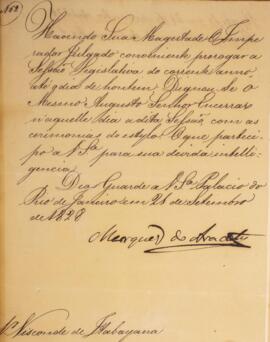 Havendo Sua Magestade O Impe
rador julgado conveniente prorogar a
Sessão Legislativa do corrente anno
até o dia de hontem, Dignou-Se O
Mesmo Augusto Senhor Encerrar
n'aquelle dia a dita Sessão com as
ceremonias do estylo. O que partici
po a V.Sª para sua devida intelli
gencia.
Deos Guarde a V.Sª Palacio do
Rio de Janeiro em 21 de Setembro
de 1828
Marquez do Aracaty
Visconde de Itabayana